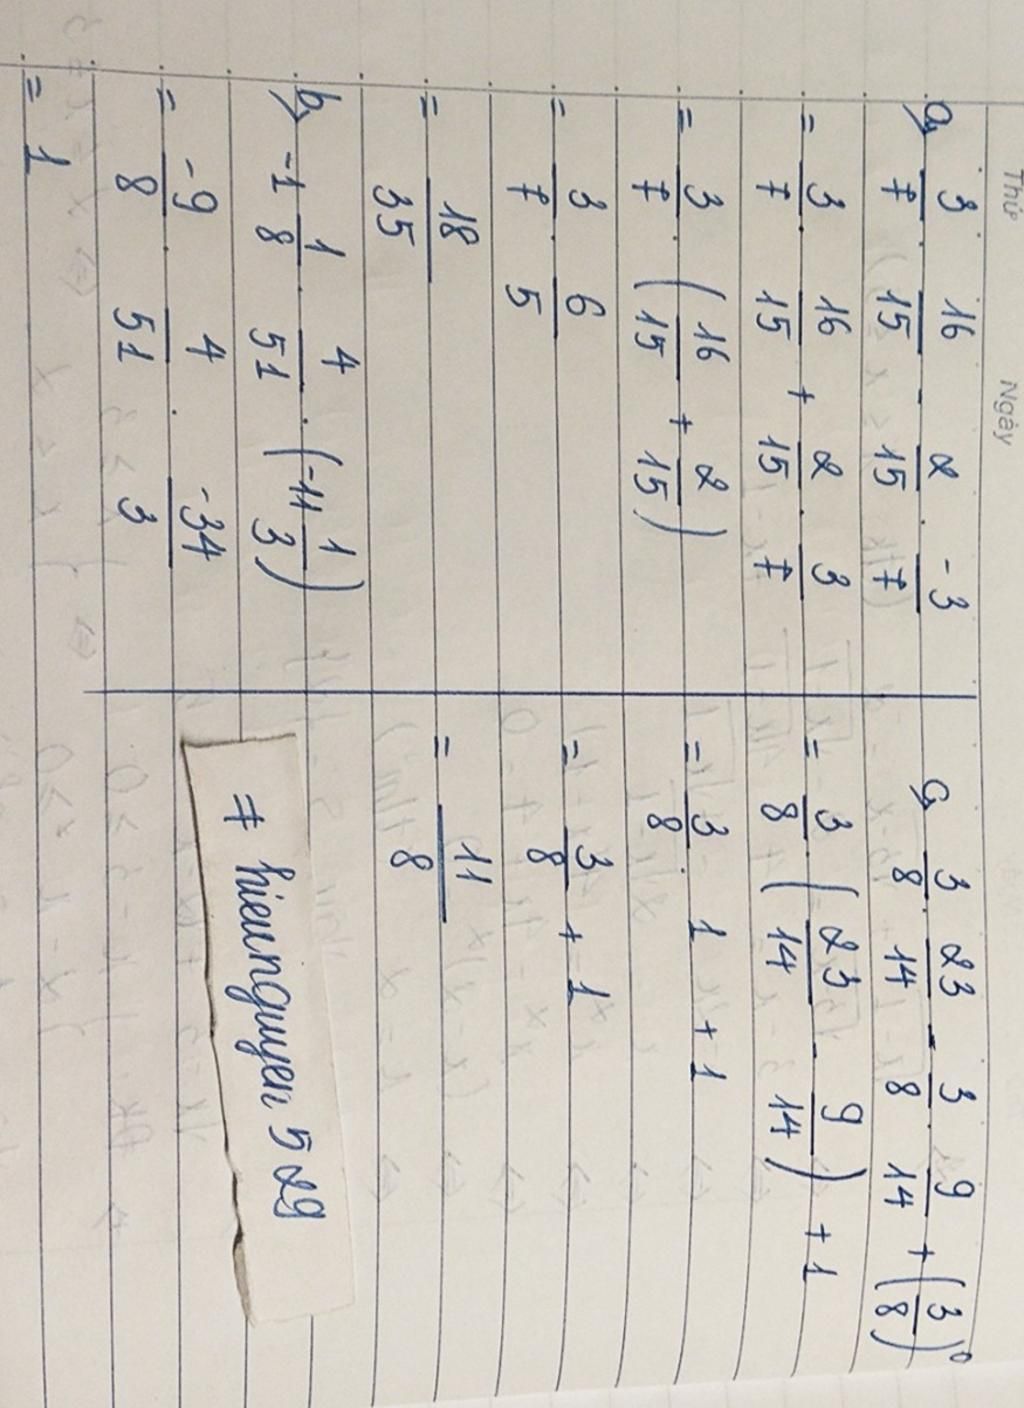 Thứ Ngày
a, 3/7 . 16/15 - 2/15 . -3/7
= 3/7 . 16/15 + 2/15 . 3/7
= 3/7 . (16/15 + 2/15)
= 3/7 . 6/5
= 18/35
b, -1 1/8 . 4/51 . (-11 1/3)
= -9/8 . 4/51 . -34/3
= 1
c, 3/8 . 23/14 - 3/8 . 9/14 + (3/8)^0
= 3/8 . (23/14 - 9/14) + 1
= 3/8 . 1 + 1
= 3/8 + 1
= 11/8
# hieunguyen 529